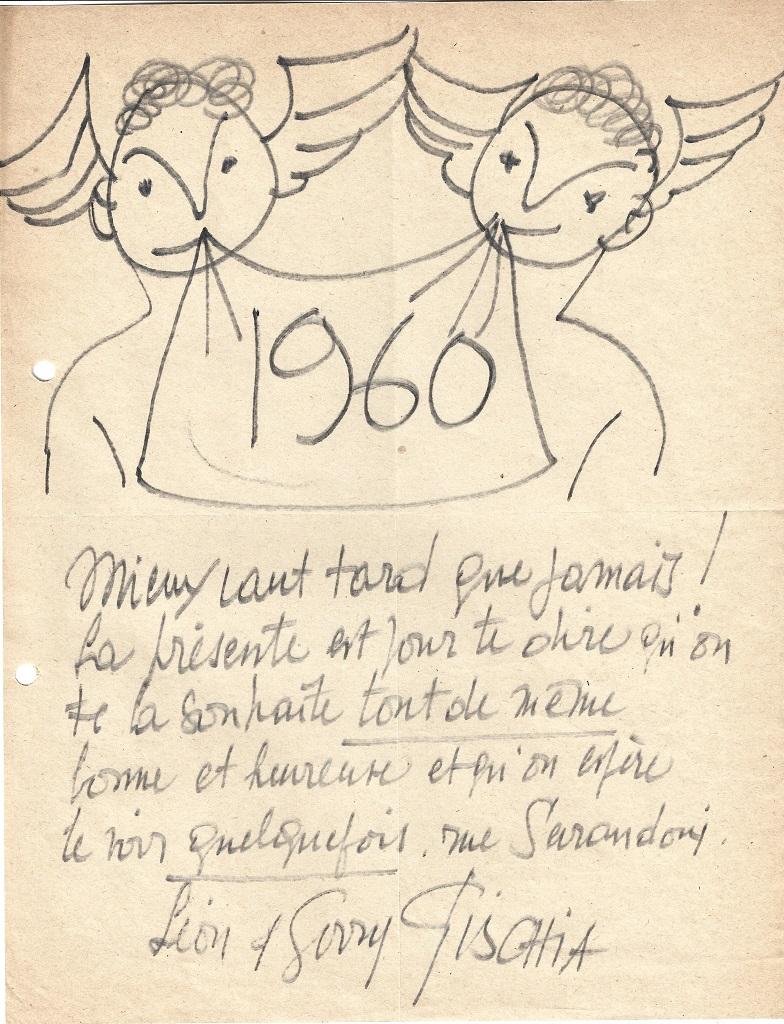 1960
Mieux vaut tard que jamais !
La présente est pour te dire qu'on
te la souhaite tout de même
bonne et heureuse et qu'on espère
te voir quelquefois. rue Servandoni.
Léon et GISCHIA